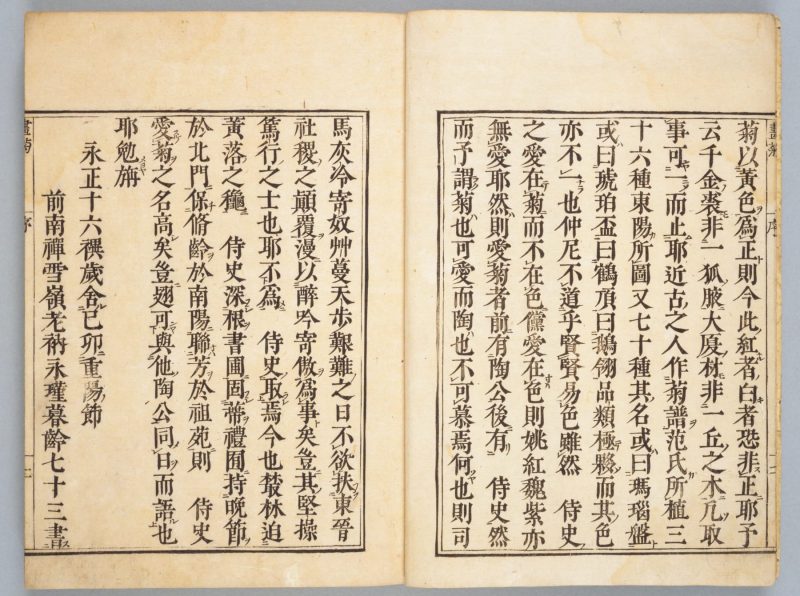 菊以黃色爲正則今此紅者白者恐非正耶予
云千金裘非一狐腋大厦材非一丘之木凡取
事可一而止耶近古之人作菊譜范氏所植三
十六種東陽所圖又七十種其名或曰瑪瑙盤
或曰琥珀盃曰鶴頂曰鵝翎品類極夥而其色
亦不一也仲尼不道乎賢賢易色雖然　侍史
之愛在菊而不在色儻愛在色則姚紅魏紫亦
無愛耶然則愛菊者前有陶公後有　侍史然
而予謂菊也可愛而陶也不可慕焉何也則司
馬灰冷寄奴艸蔓天步艱難之日不欲扶東晉
社稷之顛覆漫以醉吟寄傲爲事矣豈其堅操
篤行之士也耶不爲　侍史取焉今也蓺林追
黃落之穐　侍史深根書圃固蒂禮囿持晩節
於北門保脩齡於南陽聯芳於祖苑則　侍史
愛菊之名高矣豈翅可與他陶公同日而語也
耶勉旃
永正十六禩歲舍己卯重陽節
前南禪雪嶺老衲永瑾暮齡七十三書
畫菊
序